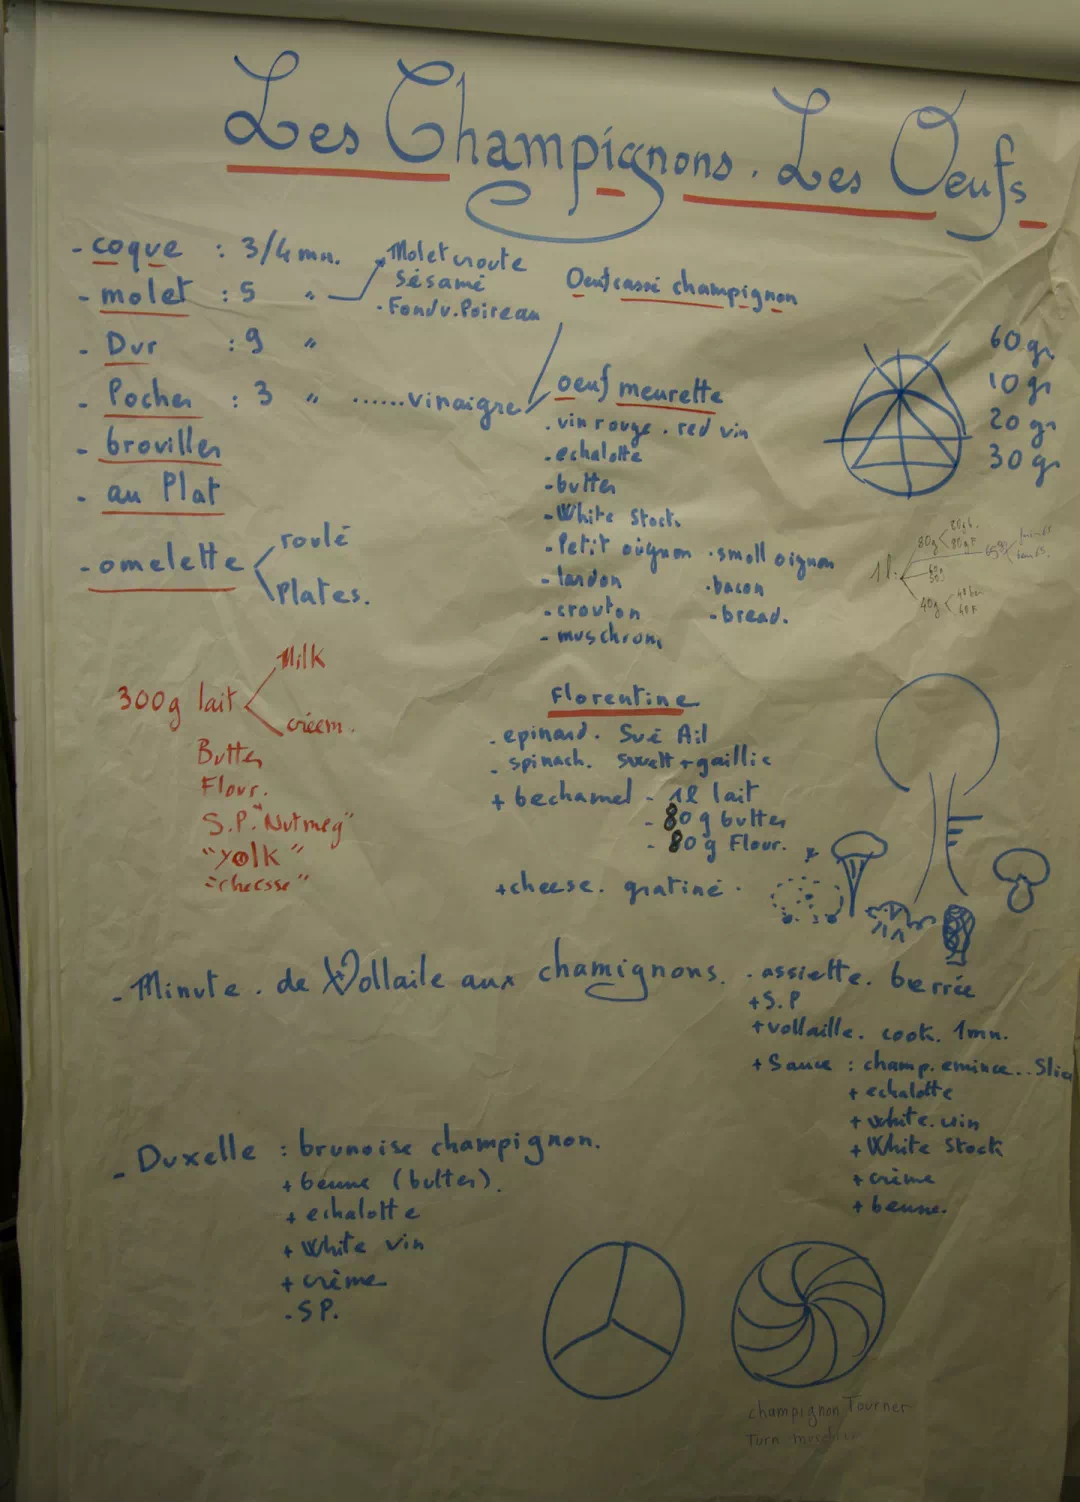 Les Champignons. Les Oeufs
- coque : 3/4 mn.
- molet : 5 "
Molet croute
sésamé
- Fondu. Poireau
- Dur : 9 "
- Pocher : 3 " ......vinaigre
- brouiller
- au Plat
- omelette
roulé
Plates.
Oeuf cassé champignon
oeuf meurette
. vin rouge . red vin
. echalotte
- butter
- White Stock
- Petit oignon . small oignon
- lardon . bacon
- crouton - bread.
- muschrom
60 gr
10 gr
20 gr
30 gr
1l:
80g
40g
300g lait
Milk
créem.
Butter
Flour.
S.P. "Nutmeg"
"yolk"
=cheesse"
Florentine
. epinard. Sué Ail
- spinach. swett + gaillic
+ bechamel - 1l lait
- 80g butter
- 80g Flour.
+cheese. gratiné.
- Minute. de Vollaile aux chamignons.
. assiette. berrée
+S.P
+vollaille. cook. 1mn.
+ Sauce : champ. emince.. Slic
+ echalotte
+ white. vin
+ White Stock
+ crème
+ beurre.
- Duxelle : brunoise champignon.
+ beurre (butter).
+ echalotte
+ White vin
+ crème
- S P.
champignon Tourner
Turn